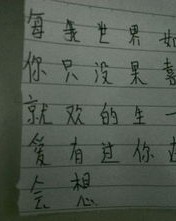 每 我 世 界 如
你 只 没 果 喜
就 欢 的 生 一
爱 有 过 你
会 想